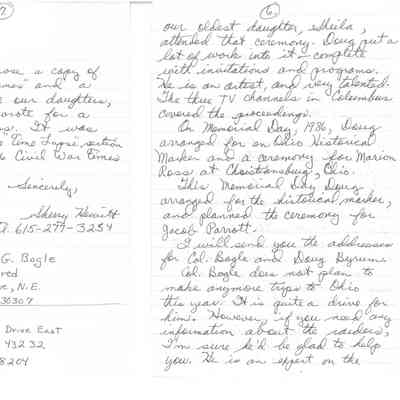 7
ose a copy of
and a
e our daughters,
wrote for a
It was
e Time
6 Civil War Times
Sincerely,
Sherry Hewitt
615-277-3254
G. Bogle
red
e, N.E.
30307
Drive East
43232
8204
6
our oldest daughter, Sheila,
attended that ceremony. Doug put a
lot of work into it - complete
with invitations and programs.
He is an artist, and very talented.
The three TV channels in Columbus
covered the proceedings.
On Memorial Day, 1986, Doug
arranged for an Ohio Historical
Marker and a ceremony for Marion
Ross at Christiansburg, Ohio.
This Memorial Day Doug
arranged for the historical marker,
and planned the ceremony for
Jacob Parrott.
I will send you the addresses
for Col. Bogle and Doug Byrum.
Col. Bogle does not plan to
make anymore trips to Ohio
this year. It is quite a drive for
him. However, if you need any
information about the raiders,
I'm sure he'd be glad to help
you. He is an expert on the